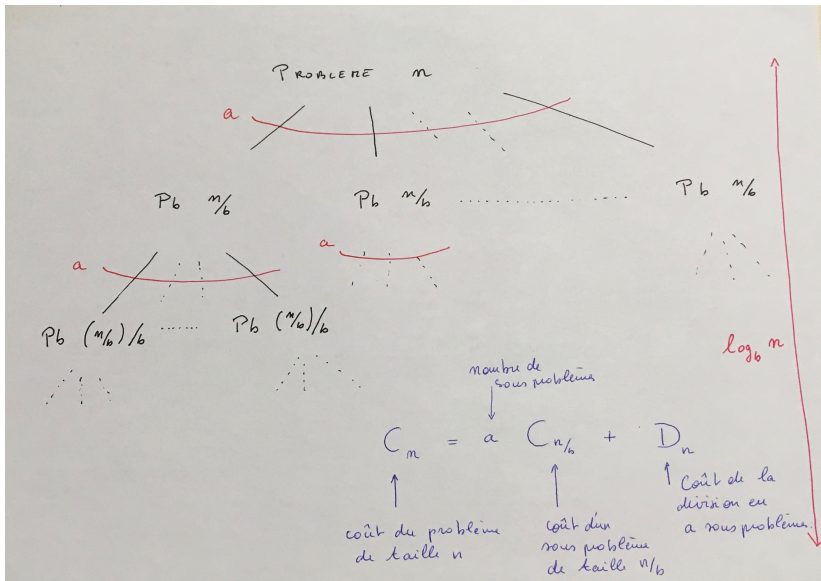 PROBLEME n
a
Pb n/b Pb n/b ................ Pb n/b
a a
Pb (n/b)/b ...... Pb (n/b)/b
log_b n
nombre de
sous problèmes
C_n = a C_{n/b} + D_n
coût du problème
de taille n
coût d'un
sous problème
de taille n/b
Coût de la
division en
a sous problèmes.